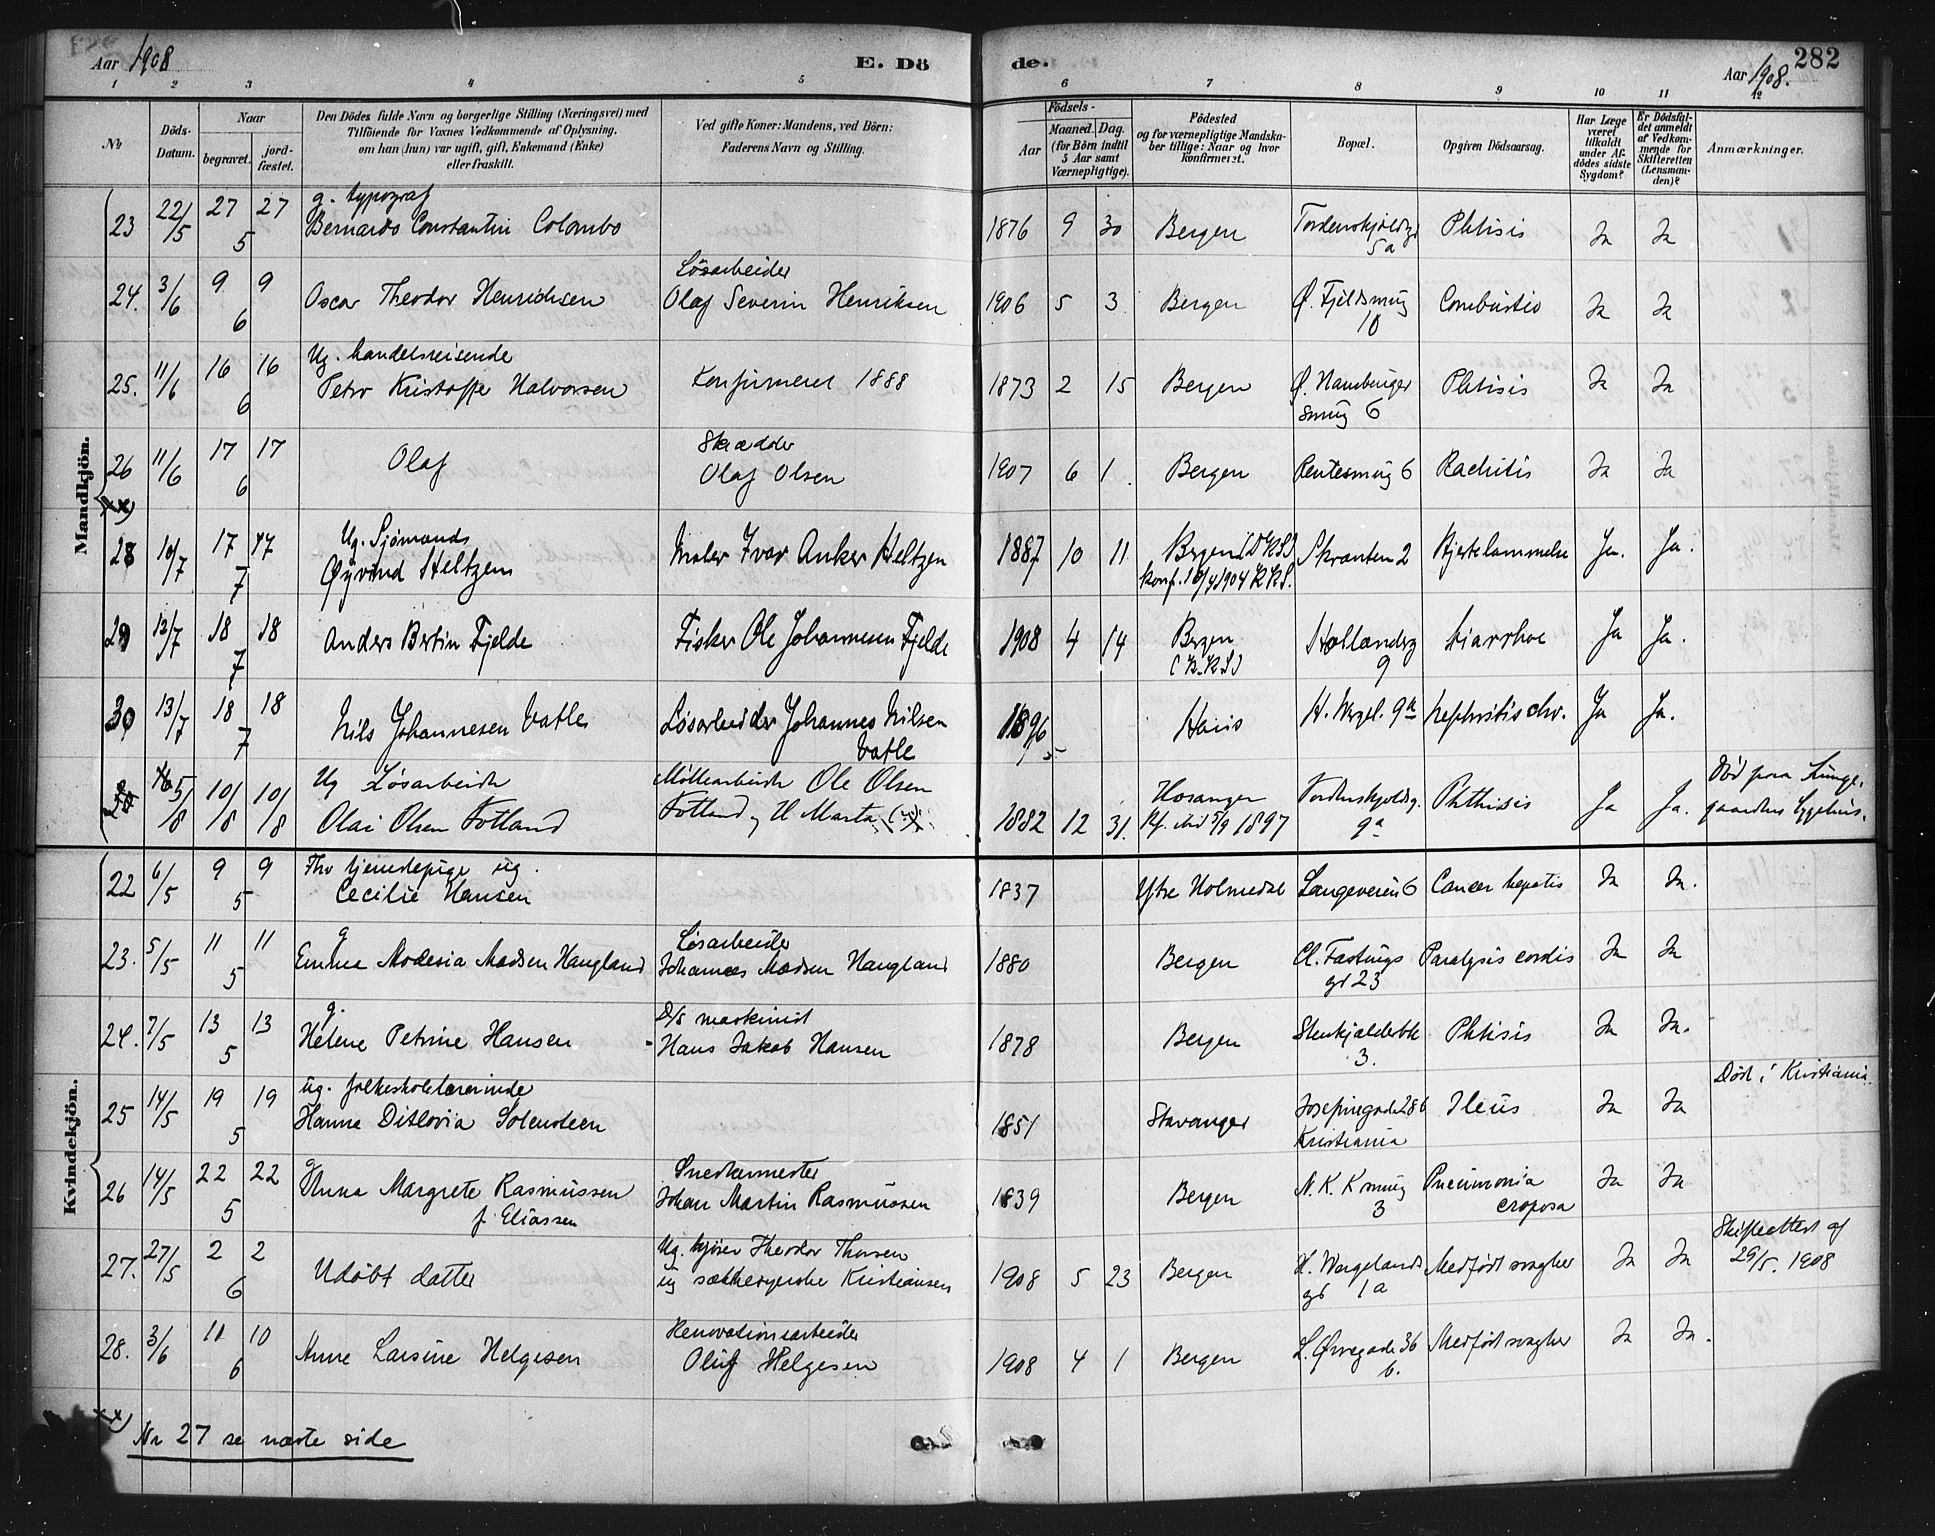 Aar 1908
E. Dö
de.
Aar 1908.
282
1 2 3 4 5 6 7 8 9 10 11 12
No
Döds-Datum.
Naar
begravet. jord-fæstet.
Den Dödes fulde Navn og borgerlige Stilling (Næringsvei) med
Tilföiende for Voxnes Vedkommende af Oplysning,
om han (hun) var ugift, gift, Enkemand (Enke)
eller fraskilt.
Ved gifte Koner: Mandens, ved Börn:
Faderens Navn og Stilling.
Födsels-
Aar Maaned. Dag.
(for Börn indtil
5 Aar samt
Værnepligtige).
Födested
og for værnepligtige Mandska-
ber tillige: Naar og hvor
konfirmeret.
Bopæl.
Opgiven Dödsaarsag.
Har Læge
været
tilkaldt
under Af-
dødes sidste
Sygdom?
Er Dödsfal-
det anmeldt
af Vedkom-
mende for
Skifteretten
(Lensman-
den)?
Anmærkninger.
Mandkjön.
g. typograf
23 22/5 27/5 27 Bernardo Constantin Colombo 1876 9 30 Bergen Tordenskjoldsgt 5a Phtisis Ja Ja
Løsarbeider
24. 3/6 9/6 9 Oscar Theodor Henrichsen Olaf Severin Henriksen 1906 5 3 Bergen Ø. Fjeldsmug 10 Combustio Ja Ja
Ug. handelsreisende
25. 11/6 16/6 16 Petro Kristoffe Halvorsen Konfirmeret 1888 1873 2 15 Bergen Ø. Hamburger smug 6 Phtisis Ja Ja
Skrædder
26 11/6 17/6 17 Olaf Olaf Olsen 1907 6 1. Bergen Rentesmug 6 Rachitis Ja Ja
xx)
Ug. Sjömands
28 10/7 17/7 17 Øyvind Heltzen Maler Ivar Anker Heltzen 1887 10 11 Bergen (D.K.S) Skranten 2 Hjertelammelse Ja. Ja.
konf. 10/4 1904 K.K.S.
29 12/7 18/7 18 Anders Bertin Fjelde Fisker Ole Johannesen Fjelde 1908 4 14 Bergen (K.K.S) Hollenderg 9 Diarrhoe Ja Ja.
30 13/7 18/7 18 Nils Johannesen Vatle Løsarbeider Johannes Nilsen Vatle 1896 Haus H. Wergel. 9a Nephritis chr. Ja Ja.
Ug Løsarbeider
5/8 10/8 10/8 Olai Olsen Totland Møllearbeider Ole Olsen Totland og H Marta 1882 12 31. Hosanger Kf. 5/9 1897 Tordenskjoldsg. 9a Phthisis Ja Ja. Död paa Lunge-
gaardens Sygehus.
Kvindekjön.
Fhv tjenestepige ug.
22 6/5 9/5 9 Cecilie Hansen 1837 Ytre Holmedal Langeveien 6 Cancer hepatis Ja Ja.
g Løsarbeider
23. 5/5 11/5 11 Emma Modesia Madsen Haugland Johannes Madsen Haugland 1880 Bergen Cl. Fastings gt 23 Paralysis cordis Ja Ja
g. D/s maskinist
24. 7/5 13/5 13 Helene Petrine Hansen Hans Jakob Hansen 1878 Bergen Stenkjælderbk 3. Phtisis Ja Ja.
ug. folkeskolelærerinde
25 14/5 19/5 19 Hanne Ditlovia Solensteen 1851 Stavanger Josefinegade 28b Kristiania Ileus Ja Ja Död i Kristiania
g Snedkermester
26 14/5 22/5 22 Anna Margrete Rasmussen f. Eliassen Johan Martin Rasmussen 1839 Bergen N. K. K smug 3 Pneumonia croposa Ja Ja
Ug. kjører Theodor Thorsen
27. 27/5 2/6 2 Udöbt datter ug sækkesyerske Kristiansen 1908 5 23 Bergen H. Wergelands gt 1a Medfödt svaghet Ja Ja Skifteattest af
29/5. 1908
Renovationsarbeider
28. 3/6 11/6 10 Anne Larsine Helgesen Oluf Helgesen 1908 4 1 Bergen L. Øvregade 36 b. Medfödt svaghet Ja Ja.
xx)
Nr 27 se næste side